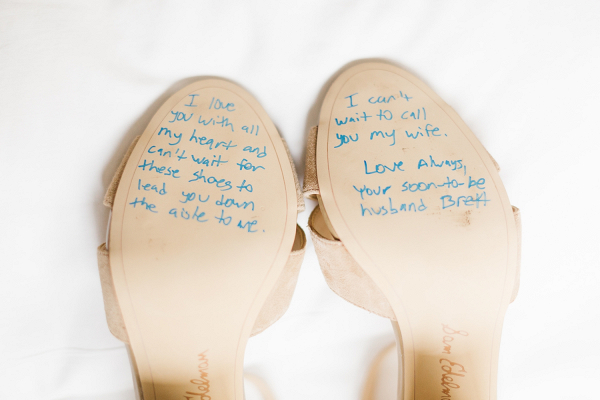 I love
you with all
my heart and
can't wait for
these shoes to
lead you down
the aisle to me.
I can't
wait to call
you my wife.
Love Always,
your soon-to-be
husband Brett
Sam Edelman
Sam Edelman